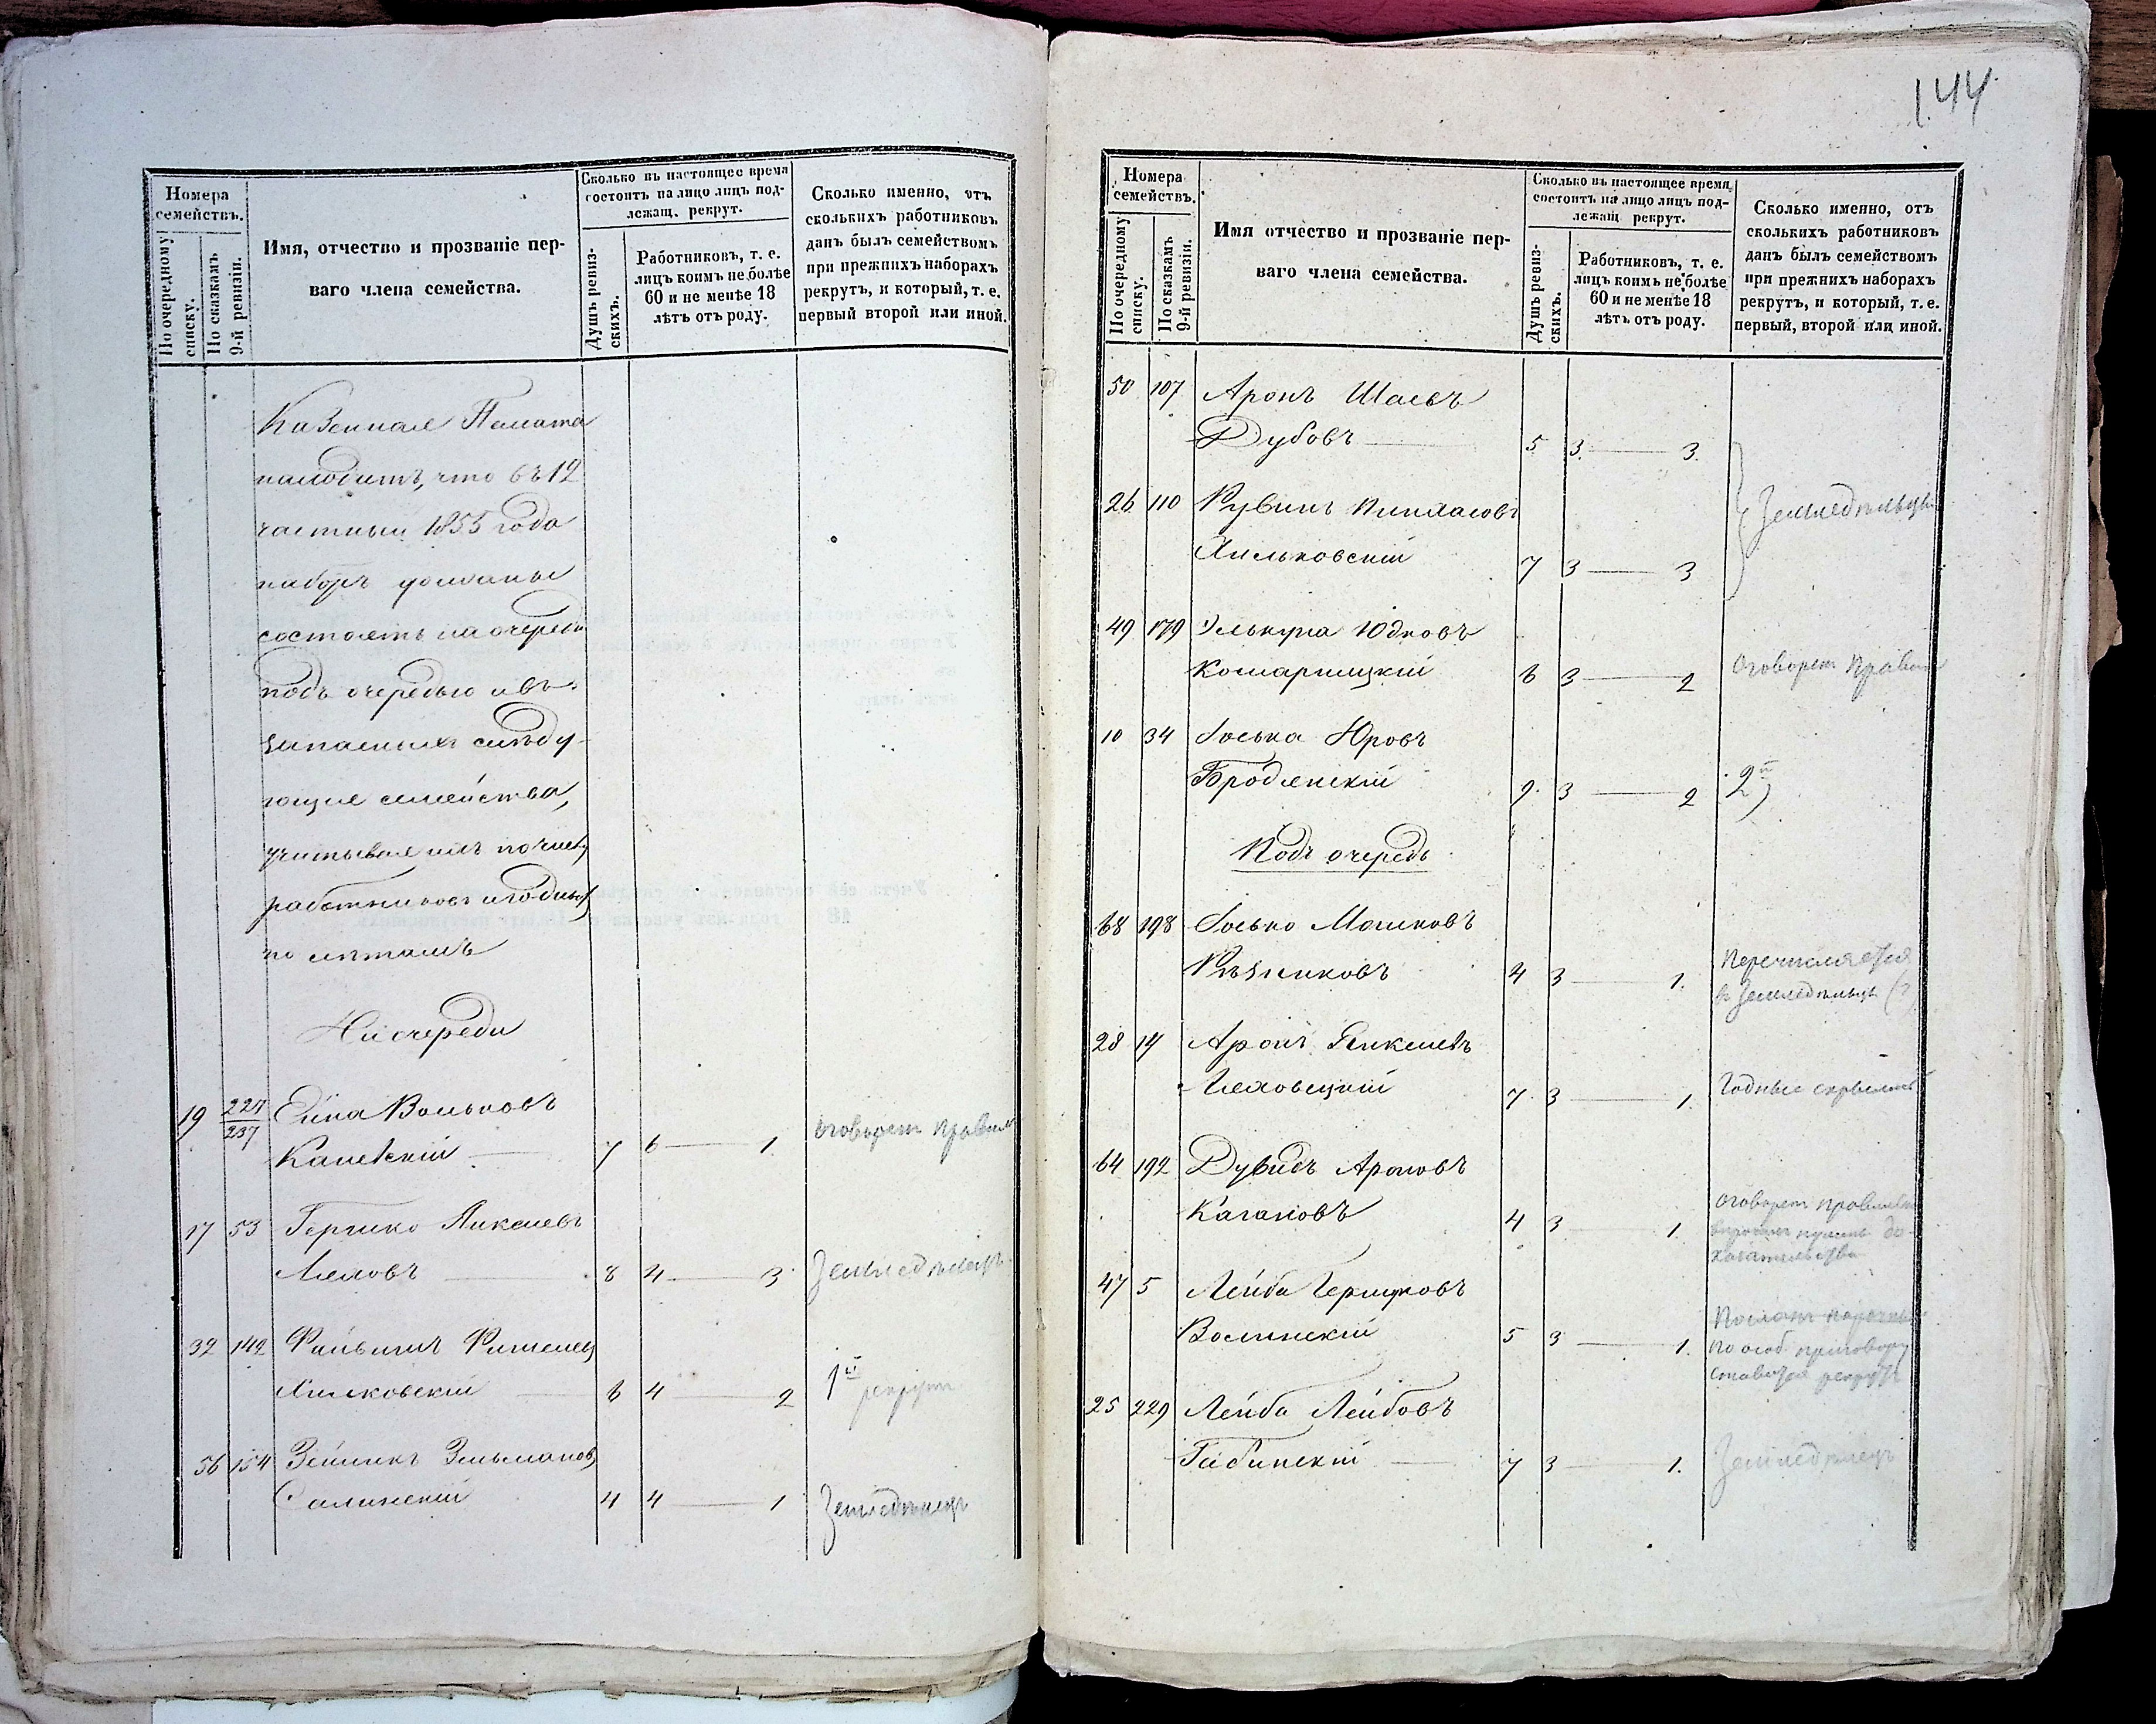 Номера семействъ.
По очередному списку.
По сказкамъ 9-й ревизіи.
Имя, отчество и прозваніе перваго члена семейства.
Сколько въ настоящее время состоитъ на лицо лицъ подлежащ. рекрут.
Душъ ревизскихъ.
Работниковъ, т. е. лицъ коимъ не болѣе 60 и не менѣе 18 лѣтъ отъ роду.
Сколько именно, отъ сколькихъ работниковъ данъ былъ семействомъ при прежнихъ наборахъ рекрутъ, и который, т. е. первый второй или иной.
Казенная Палата
находитъ, что въ 12
частный 1855 года
наборъ должны
состоять на очереди
подъ очередью и въ
запасныхъ слѣду-
ющие семейства,
учитывая ихъ по числу
работниковъ и годных
по лѣтамъ
На очереди
19 227/237 Ейна Вольковъ
Каневскій 7 6 — 1 оговорен правил
17 53 Гершко Янкелевъ
Ляховъ 8 4 — 3 Земледѣлецъ
32 142 Файвишъ Фишелев
Хилковскій 6 4 — 2 1й рекрут
56 154 Зейликъ Зельманов
Салинскій 4 4 — 1 Земледѣлецъ
144
Номера семействъ.
По очередному списку.
По сказкамъ 9-й ревизіи.
Имя отчество и прозваніе перваго члена семейства.
Сколько въ настоящее время состоитъ на лицо лицъ подлежащ рекрут.
Душъ ревизскихъ.
Работниковъ, т. е. лицъ коимъ не болѣе 60 и не менѣе 18 лѣтъ отъ роду.
Сколько именно, отъ сколькихъ работниковъ данъ былъ семействомъ при прежнихъ наборахъ рекрутъ, и который, т. е. первый, второй или иной.
50 107 Аронъ Шаевъ
Дубовъ 5 3 — 3
Земледѣльцы
26 110 Рувинъ Пинхасовъ
Хильковскій 7 3 — 3
49 179 Элькуна Юдковъ
Комарницкій 6 3 — 2 Оговорен Правил
10 34 Іоська Юровъ
Бродянскій 9 3 — 2 2й
Подъ очередь
68 198 Іосько Мошковъ
Рѣзниковъ 4 3 — 1. Перечисляется
в Земледѣльцы (?)
28 14 Аронъ Генкелевъ
Ляховецкій 7 3 — 1. Годные
64 192 Дувидъ Ароновъ
Кагановъ 4 3 — 1. оговорен правилам
47 5 Лейба Гершковъ
Волинскій 5 3 — 1. по особ приговору
25 229 Лейба Лейбовъ
Габинскій 7 3 — 1. Земледѣлецъ